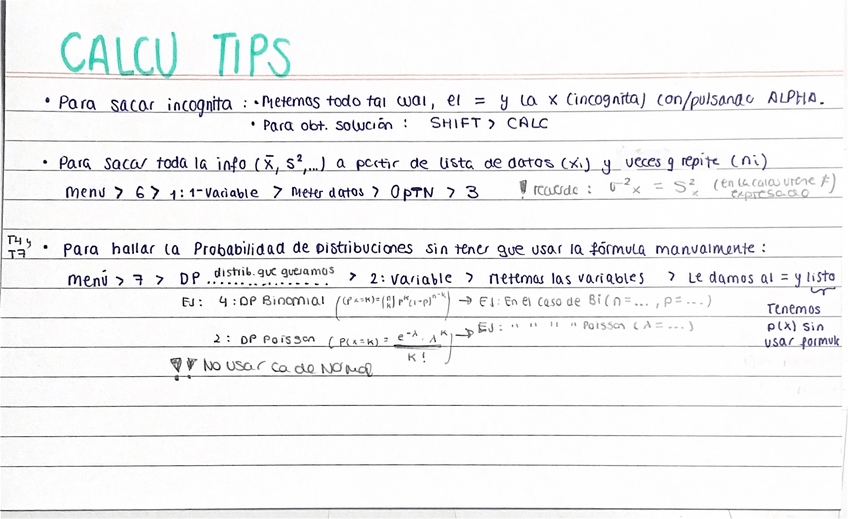 CALCU TIPS
• Para sacar incognita : • Metemos todo tal cual, el = y la x (incognita) con/pulsando ALPHA.
• Para obt. solución : SHIFT > CALC
• Para sacar toda la info (x̄, S²,...) a partir de lista de datos (xᵢ) y veces q repite (nᵢ)
menu > 6 > 1: 1-Variable > Meter datos > OPTN > 3 ! recuerda : σ²ₓ = S²ₓ (En la calcu viene expresado
T4 y T7 • Para hallar la Probabilidad de Distribuciones sin tener que usar la fórmula manualmente :
menú > 7 > DP distrib. que queramos > 2: Variable > Metemos las variables > Le damos al = y listo
EJ: 4: DP Binomial (P(x=k)=(n k) pᵏ(1-p)ⁿ⁻ᵏ) → EJ: En el caso de Bi(n=..., p=...)
Tenemos p(x) sin usar formula
2: DP Poisson (P(x=k) = e^-λ · λ^K / K!) → EJ: " " " " Poisson (λ=...)
!! No usar ca de Normal